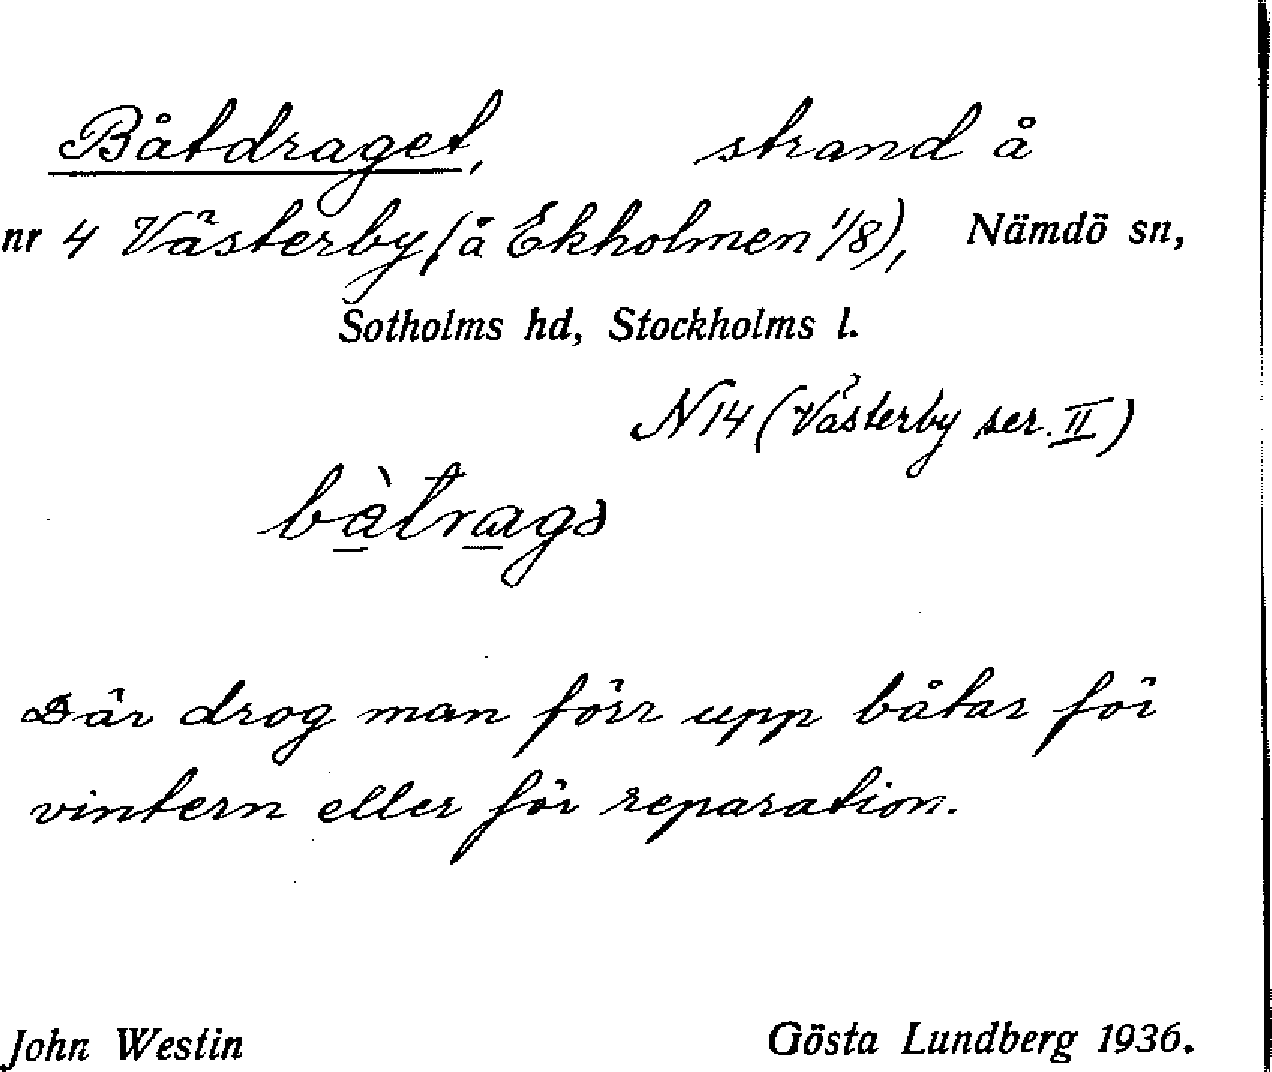 Båtdraget, strand å
nr 4 Västerby (å Ekholmen 1/8), Nämdö sn,
Sotholms hd, Stockholms l.
N 14 (Västerby ser. II)
bàtrags
Där drog man förr upp båtar för
vintern eller för reparation.
John Westin Gösta Lundberg 1936.